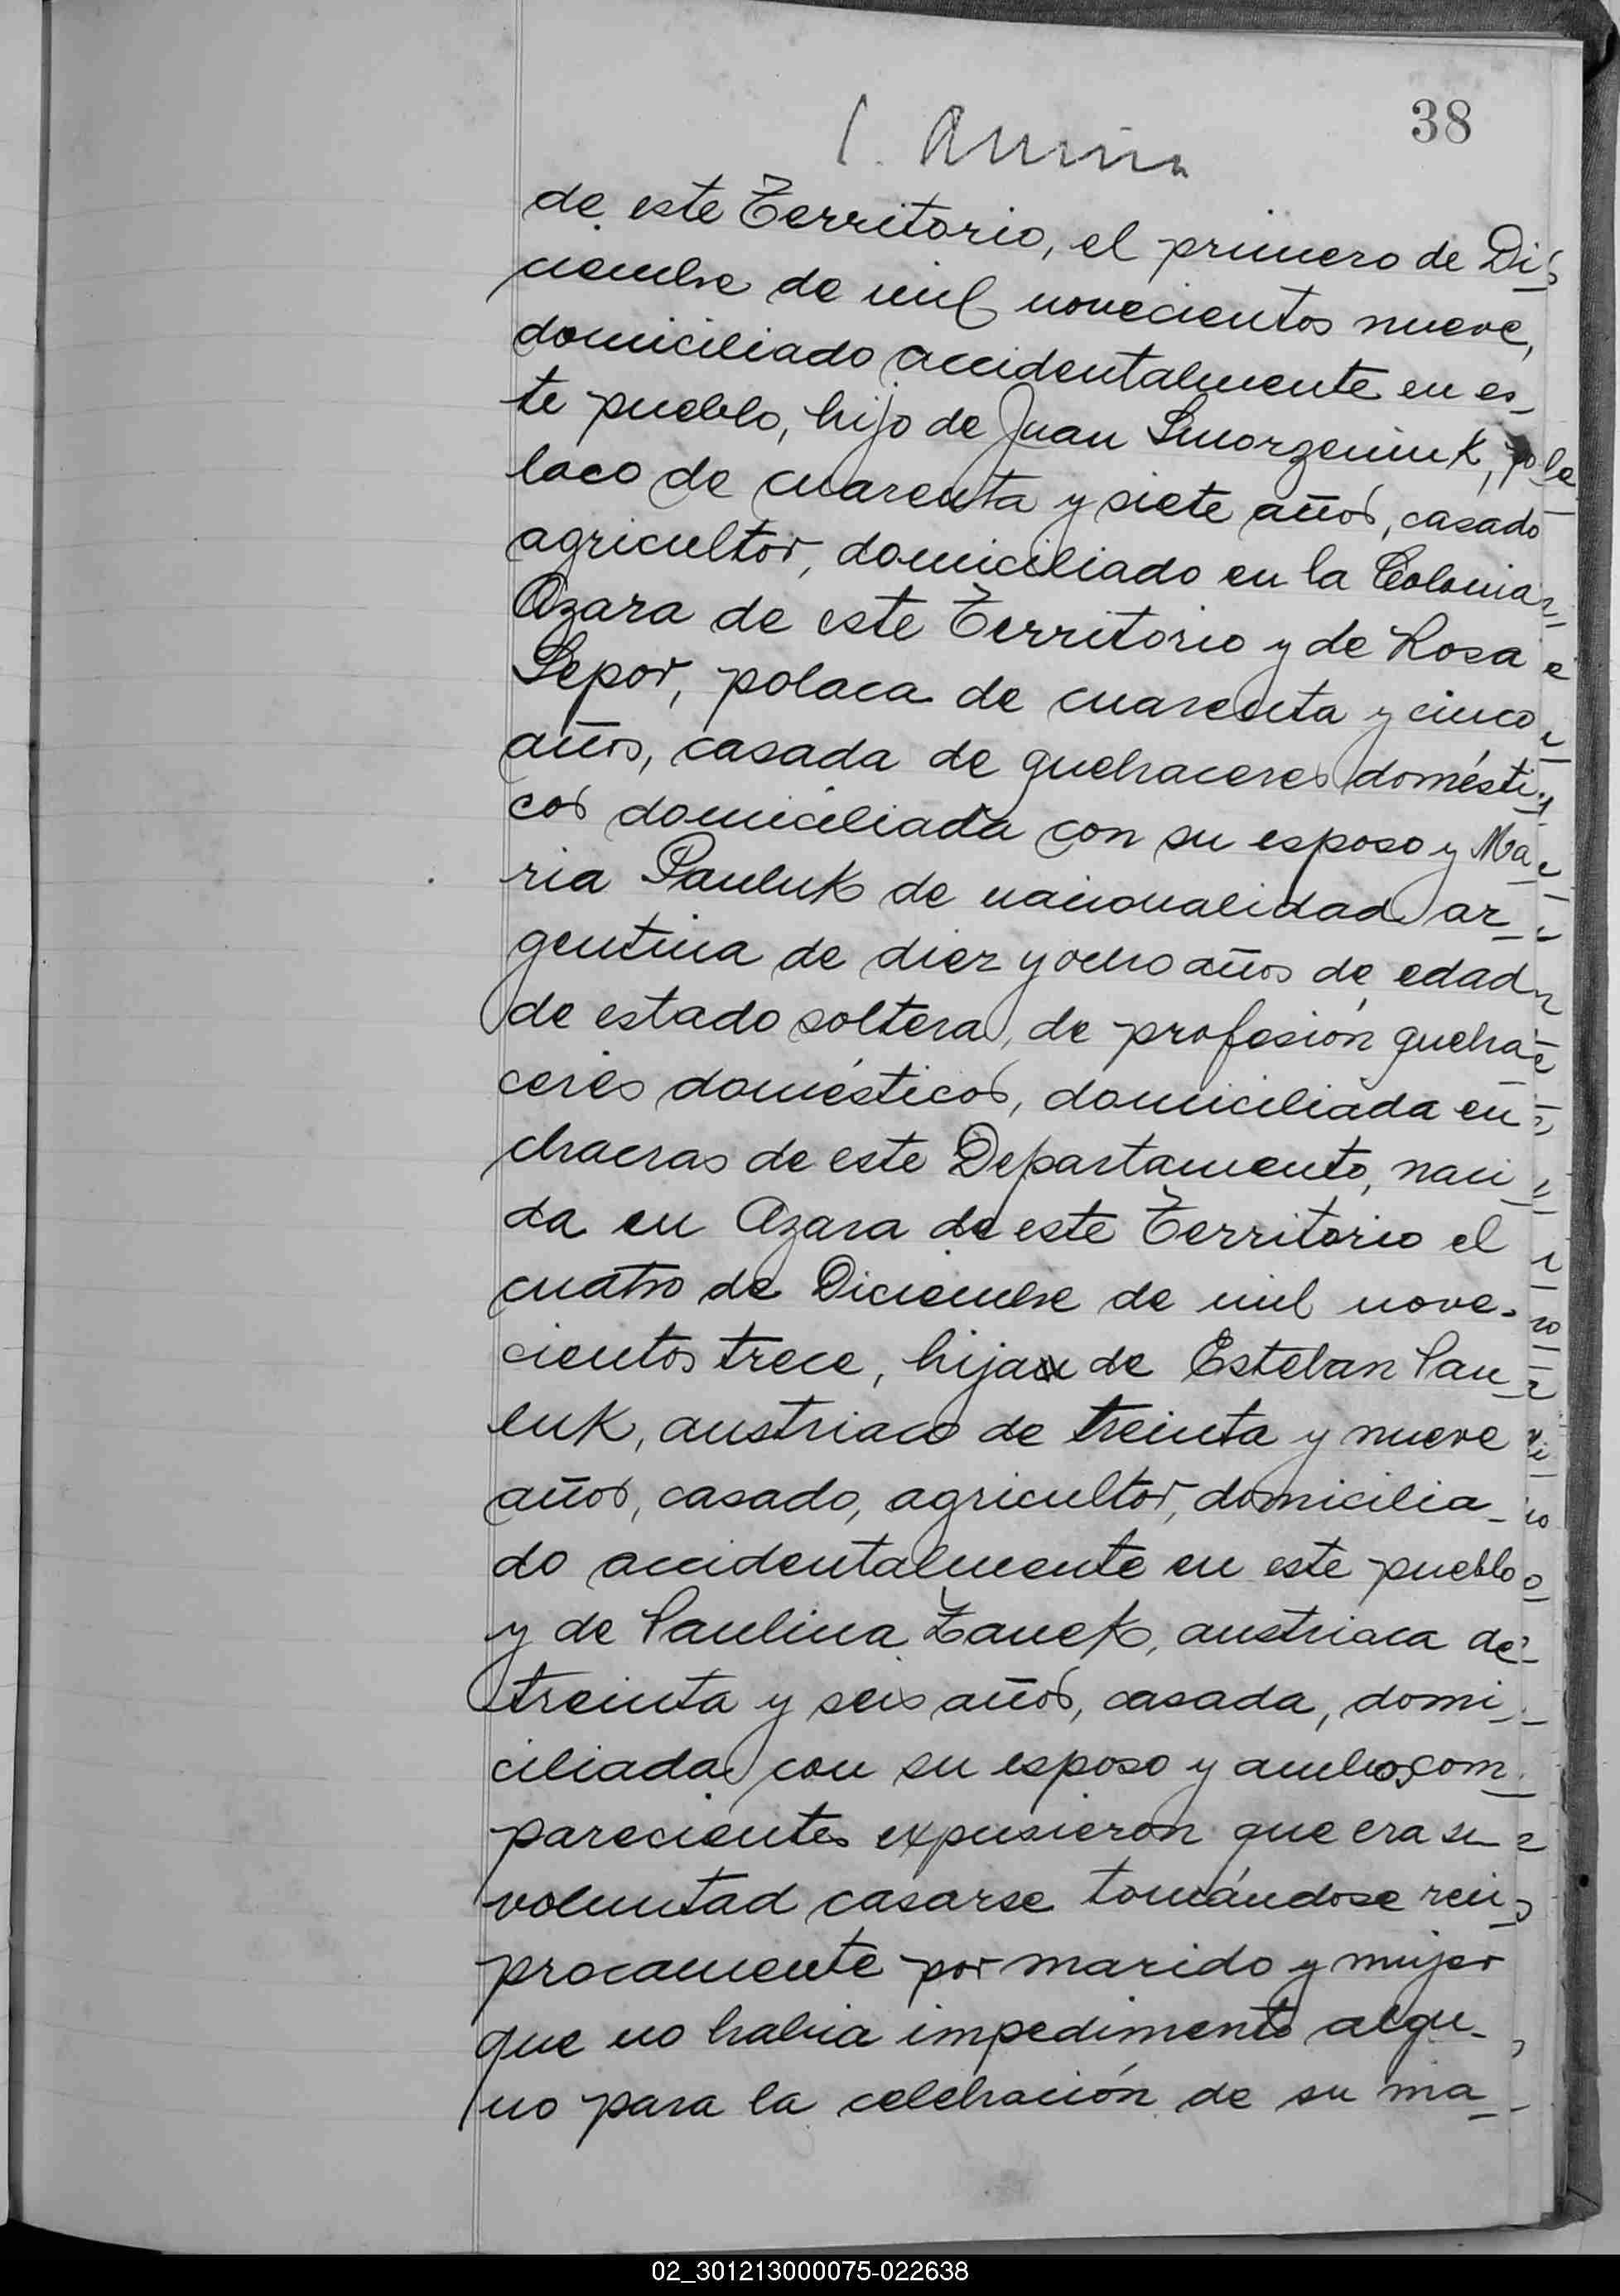 38
de este Territorio, el primero de Di
ciembre de mil novecientos nueve,
domiciliado accidentalmente en es_
te pueblo, hijo de Juan Smorzeniuk,
laco de cuarenta y siete años, casado
agricultor, domiciliado en la Colonia
Azara de este Territorio y de Rosa
Sepor, polaca de cuarenta y cinco
años, casada de quehaceres domésti
cos domiciliada con su esposo y Ma_
ria Pauluk de nacionalidad ar_
gentina de diez y ocho años de edad
de estado soltera, de profesión queha
ceres domésticos, domiciliada en
chacras de este Departamento, naci
da en Azara de este Territorio el
cuatro de Diciembre de mil nove-
cientos trece, hija de Esteban Pau_
luk, austriaco de treinta y nueve
años, casado, agricultor, domicilia_
do accidentalmente en este pueblo
y de Paulina Zanek, austriaca de
treinta y seis años, casada, domi_
ciliada con su esposo y ambos com_
parecientes expusieron que era su
voluntad casarse tomándose recí
procamente por marido y mujer
que no habia impedimento algu_
no para la celebración de su ma_
02_301213000075-022638